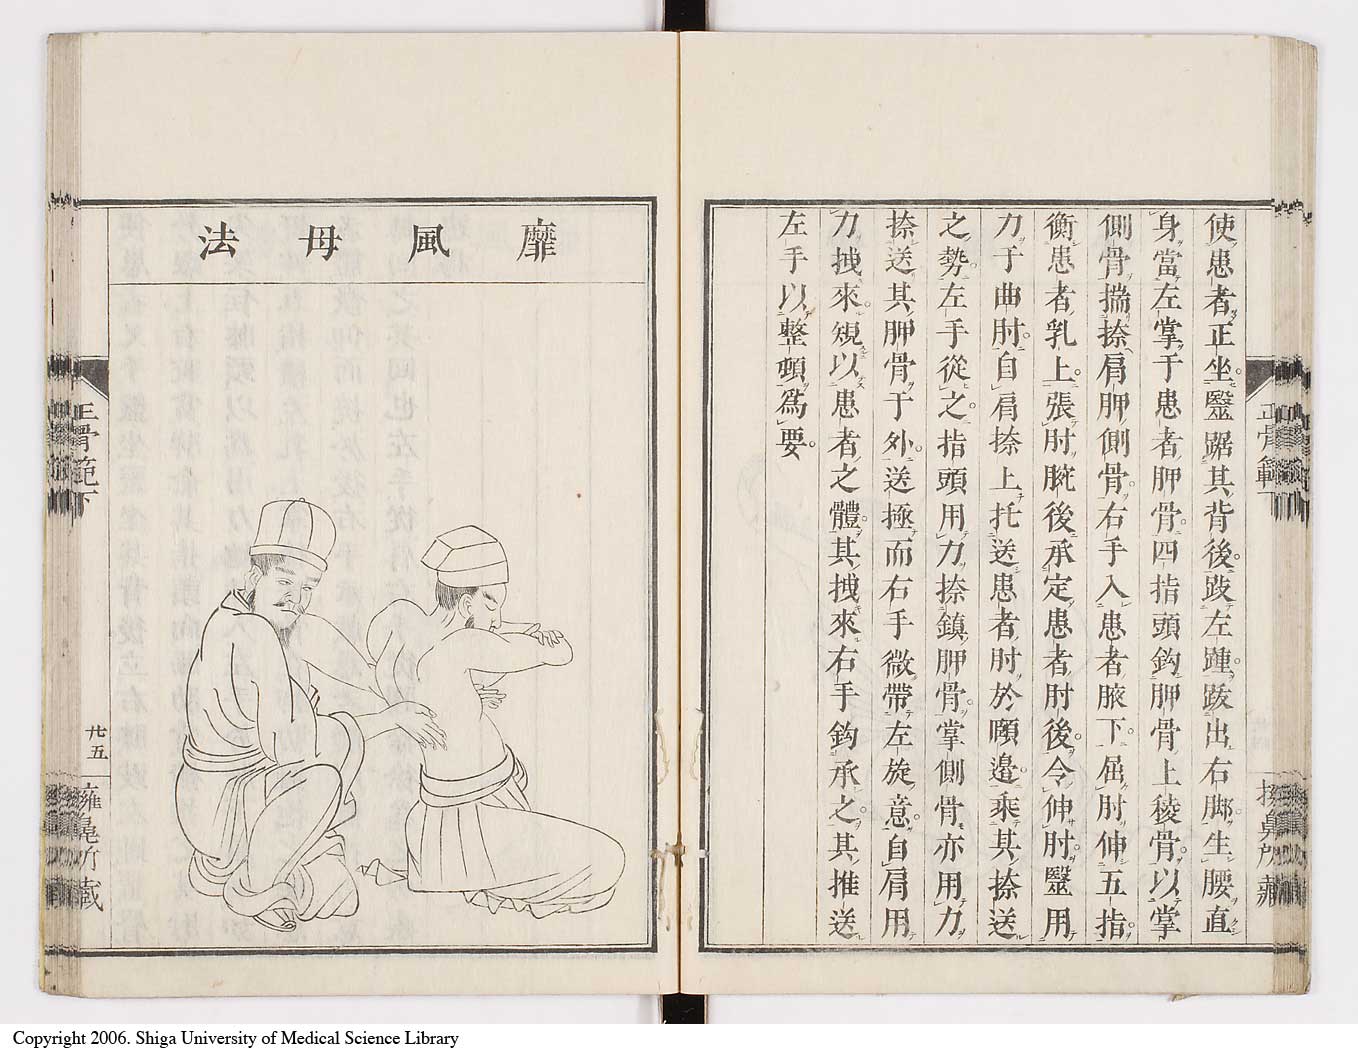 使患者正坐毉踞其背後跂左踵跋出右脚生腰直
身當左掌于患者胛骨四指頭鈎胛骨上稜骨以掌
側骨揣捺肩胛側骨右手入患者腋下屈肘伸五指
衡患者乳上張肘腕後承定患者肘後令伸肘毉用
力于曲肘自肩捺上托送患者肘於頤邊乘其捺送
之勢左手從之指頭用力捺鎮胛骨掌側骨亦用力
捺送其胛骨于外送極而右手微帶左旋意自肩用
力拽來規以患者之體其拽來右手鈎承之其推送
左手以整頓爲要
靡風母法
正骨範下
廿五
Copyright 2006. Shiga University of Medical Science Library